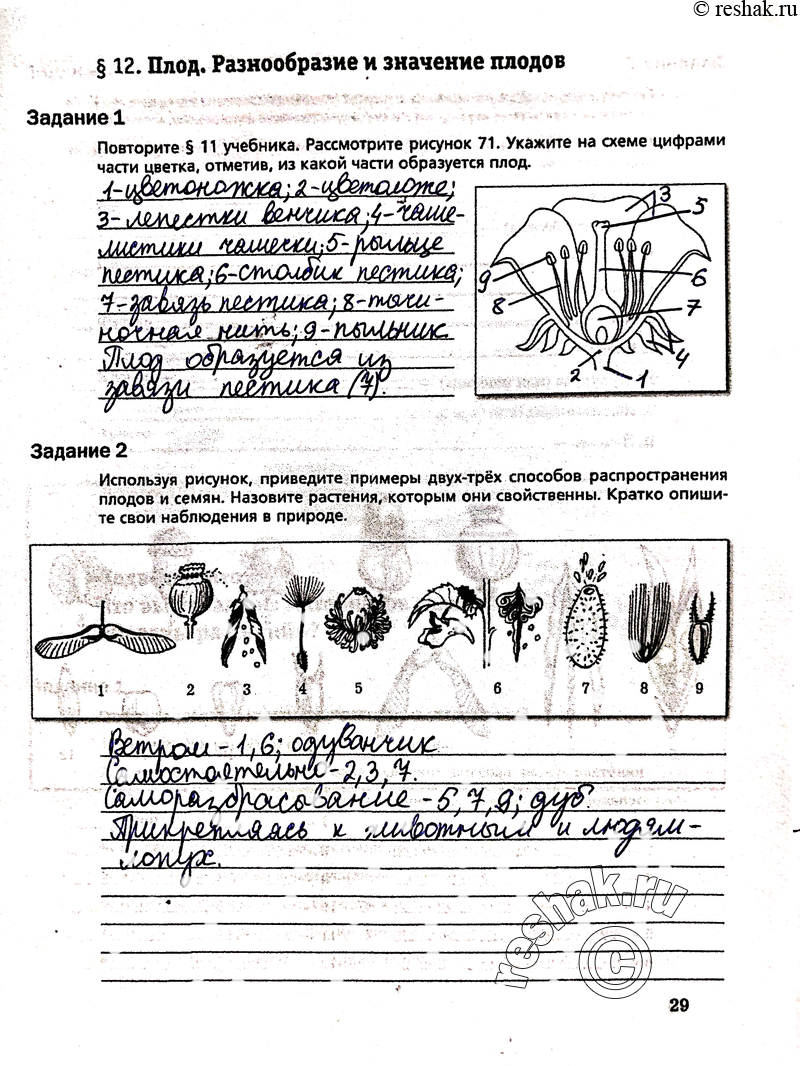 © reshak.ru
§ 12. Плод. Разнообразие и значение плодов
Задание 1
Повторите § 11 учебника. Рассмотрите рисунок 71. Укажите на схеме цифрами
части цветка, отметив, из какой части образуется плод.
1-цветоножка; 2-цветоложе;
3-лепестки венчика; 4-чаше-
листики чашечки; 5-рыльце
пестика; 6-столбик пестика;
7-завязь пестика; 8-тычи-
ночная нить; 9-пыльник.
Плод образуется из
завязи пестика (7).
3
5
9
6
8
7
4
2
1
Задание 2
Используя рисунок, приведите примеры двух-трёх способов распространения
плодов и семян. Назовите растения, которым они свойственны. Кратко опиши-
те свои наблюдения в природе.
1 2 3 4 5 6 7 8 9
Ветром - 1, 6; одуванчик
Самостоятельно - 2, 3, 7.
Саморазбрасывание - 5, 7, 9; дуб.
Прикрепляясь к животным и людям -
лопух.
reshak.ru
©
29